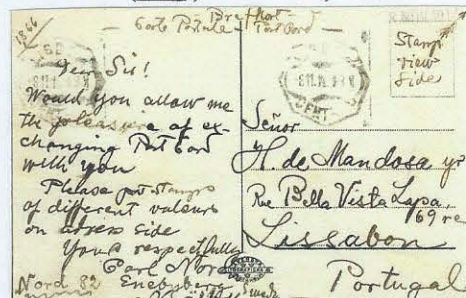 1866
Carte Postale - Post Card
Stamp
view
side
Very Sir!
Would you allow me
the pleasure of ex-
changing Post Card
with you
Please put stamps
of different valours
on adress side
Yours respectfully
Carl Nor
Enebyberg
Nord 82
Señor
H. de Mandosa yr
Rue Bella Vista Lapa,
69 re
Lissabon
Portugal